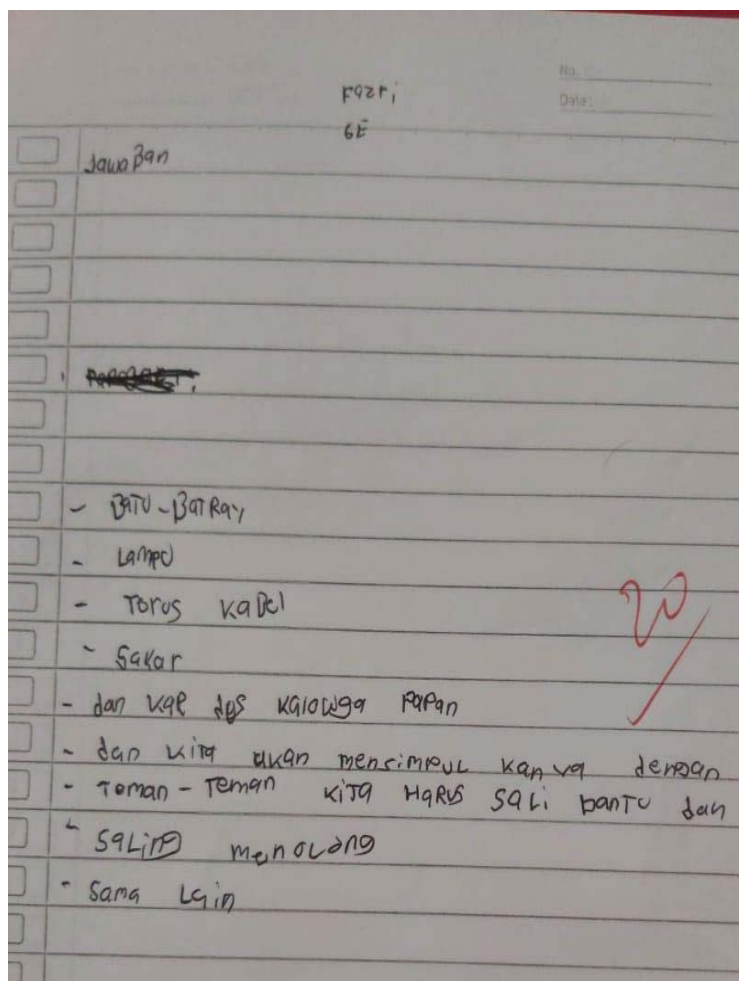 No.
Date:
Fazri
6E
JawaBan
- BaTU-BaTRay
- Lampu
- Torus KaBel
- Sakar
- dan kae dos kalowga PaPan
- dan kita akan mensimpul kan ya dengan
- Toman - Teman kita HaRUS SaLi banTu dan
- SaLing menolong
- Sama Lain
20